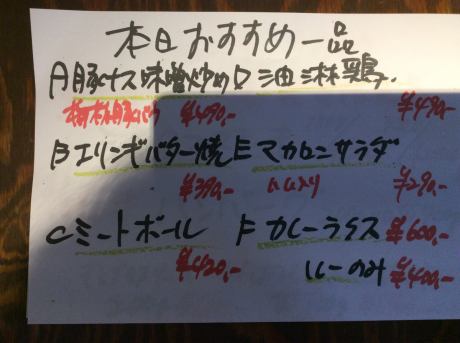 本日おすすめ一品
A豚ナス味噌炒め D 油淋鶏
豚バラ ¥490,- ¥490,-
Bエリンギバター焼 E マカロニサラダ
¥390,- ハム入り ¥290,-
Cミートボール F カレーライス ¥600,-
¥420,- ルーのみ ¥400,-